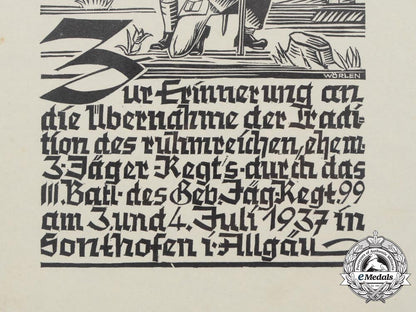 WÖRLEN
Zur Erinnerung an
die Übernahme der Tradi-
tion des ruhmreichen, ehem.
3. Jäger Regt's. durch das
III. Batl. des Geb. Jäg. Regt. 99
am 3. und 4. Juli 1937 in
Sonthofen i. Allgäu
eMedals